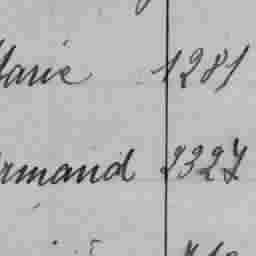 Marie 1281
Armand 2327